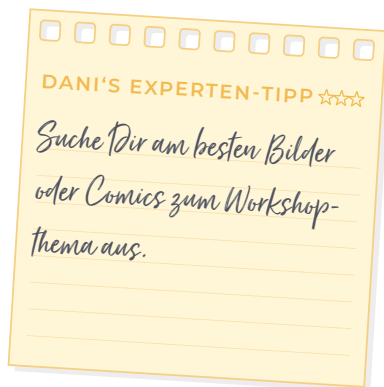 DANI‘S EXPERTEN-TIPP
Suche Dir am besten Bilder
oder Comics zum Workshop-
thema aus.